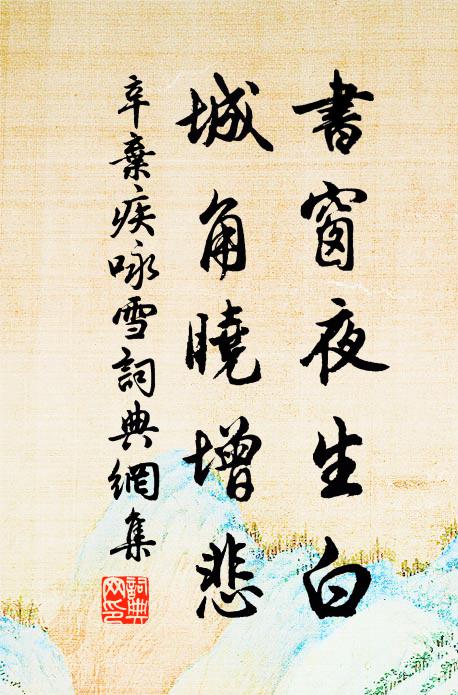 書窗夜生白
城角曉增悲
辛棄疾咏雪詞典網集
詞典